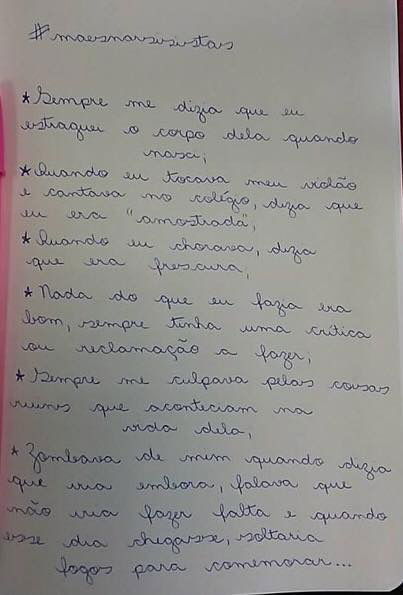 #maesnarsisistas
★Sempre me dizia que eu
estraguei o corpo dela quando
nasci;
★Quando eu tocava meu violão
e cantava no colégio, dizia que
eu era "amostrada";
★Quando eu chorava, dizia
que era frescura;
★Nada do que eu fazia era
bom, sempre tinha uma crítica
ou reclamação a fazer;
★Sempre me culpava pelas coisas
ruins que aconteciam na
vida dela;
★Zombava de mim quando dizia
que iria embora, falava que
não iria fazer falta e quando
esse dia chegasse, soltaria
fogos para comemorar...